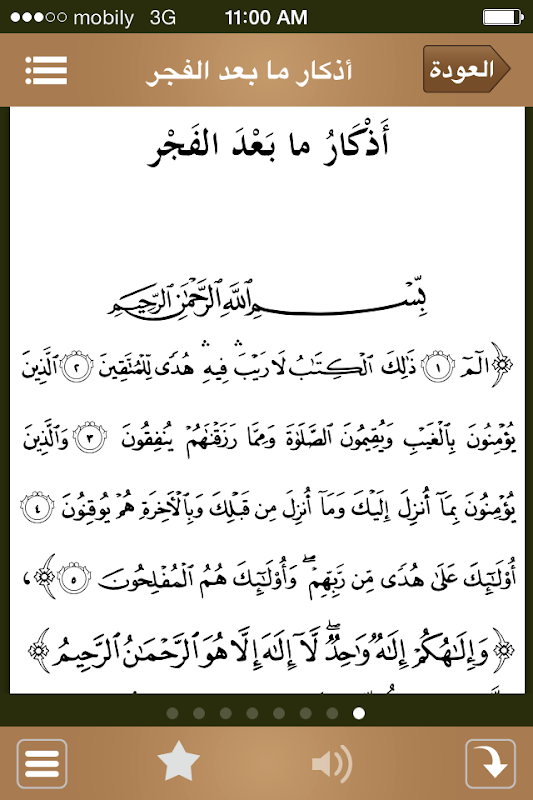 mobily 3G 11:00 AM
أذكار ما بعد الفجر العودة
أَذْكَارُ ما بَعْدَ الفَجْر
بِسْمِ ٱللَّهِ ٱلرَّحْمَٰنِ ٱلرَّحِيمِ
﴿الٓمٓ ١ ذَٰلِكَ ٱلْكِتَٰبُ لَا رَيْبَ ۛ فِيهِ ۛ هُدًى لِّلْمُتَّقِينَ ٢ ٱلَّذِينَ
يُؤْمِنُونَ بِٱلْغَيْبِ وَيُقِيمُونَ ٱلصَّلَوٰةَ وَمِمَّا رَزَقْنَٰهُمْ يُنفِقُونَ ٣ وَٱلَّذِينَ
يُؤْمِنُونَ بِمَآ أُنزِلَ إِلَيْكَ وَمَآ أُنزِلَ مِن قَبْلِكَ وَبِٱلْءَاخِرَةِ هُمْ يُوقِنُونَ ٤
أُو۟لَٰٓئِكَ عَلَىٰ هُدًى مِّن رَّبِّهِمْ ۖ وَأُو۟لَٰٓئِكَ هُمُ ٱلْمُفْلِحُونَ ٥﴾،
﴿وَإِلَٰهُكُمْ إِلَٰهٌ وَٰحِدٌ ۖ لَّآ إِلَٰهَ إِلَّا هُوَ ٱلرَّحْمَٰنُ ٱلرَّحِيمُ﴾